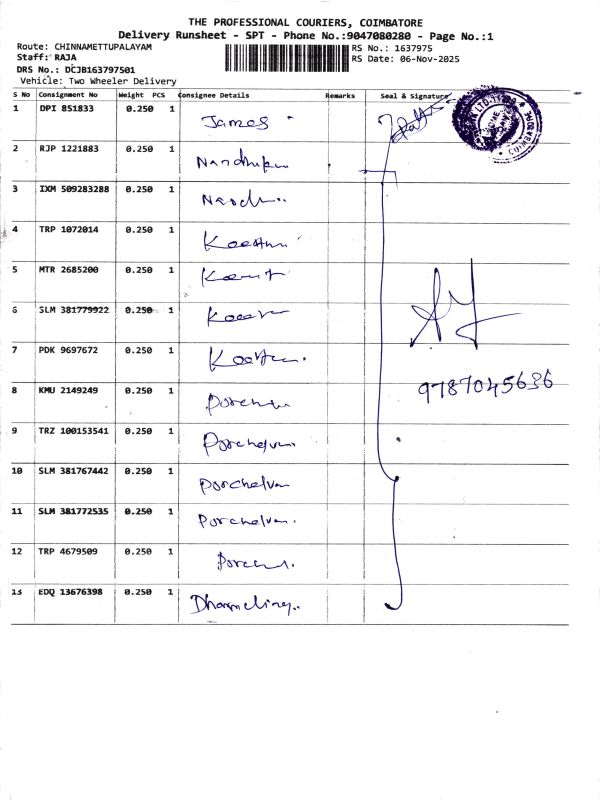 THE PROFESSIONAL COURIERS, COIMBATORE
Delivery Runsheet - SPT - Phone No.:9047080280 - Page No.:1
Route: CHINNAMETTUPALAYAM RS No.: 1637975
Staff: RAJA RS Date: 06-Nov-2025
DRS No.: DCJB163797501
Vehicle: Two Wheeler Delivery
S No Consignment No Weight PCS Consignee Details Remarks Seal & Signature
1 DPI 851833 0.250 1 James
2 RJP 1221883 0.250 1
3 IXM 509283288 0.250 1
4 TRP 1072014 0.250 1
5 MTR 2685200 0.250 1
6 SLM 381779922 0.250 1
7 PDK 9697672 0.250 1
8 KMU 2149249 0.250 1
9787045636
9 TRZ 100153541 0.250 1 Porchelvan
10 SLM 381767442 0.250 1 Porchelvan
11 SLM 381772535 0.250 1 Porchelvan.
12 TRP 4679509 0.250 1
13 EDQ 13676398 0.250 1